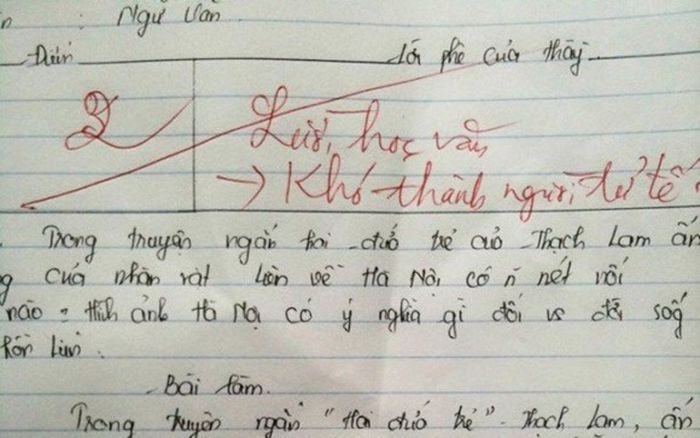 : Ngữ Văn
Điểm Lời phê của thầy
2 Lười học văn
→ Khó thành người tử tế
Trong truyện ngắn hai đứa trẻ của Thạch Lam ấn
g của nhân vật Liên về Hà Nội có n nét nổi
nào? Hình ảnh Hà Nội có ý nghĩa gì đối vs đời sống
hồn Liên.
Bài làm.
Trong truyện ngắn "Hai đứa trẻ" - Thạch Lam, ấn